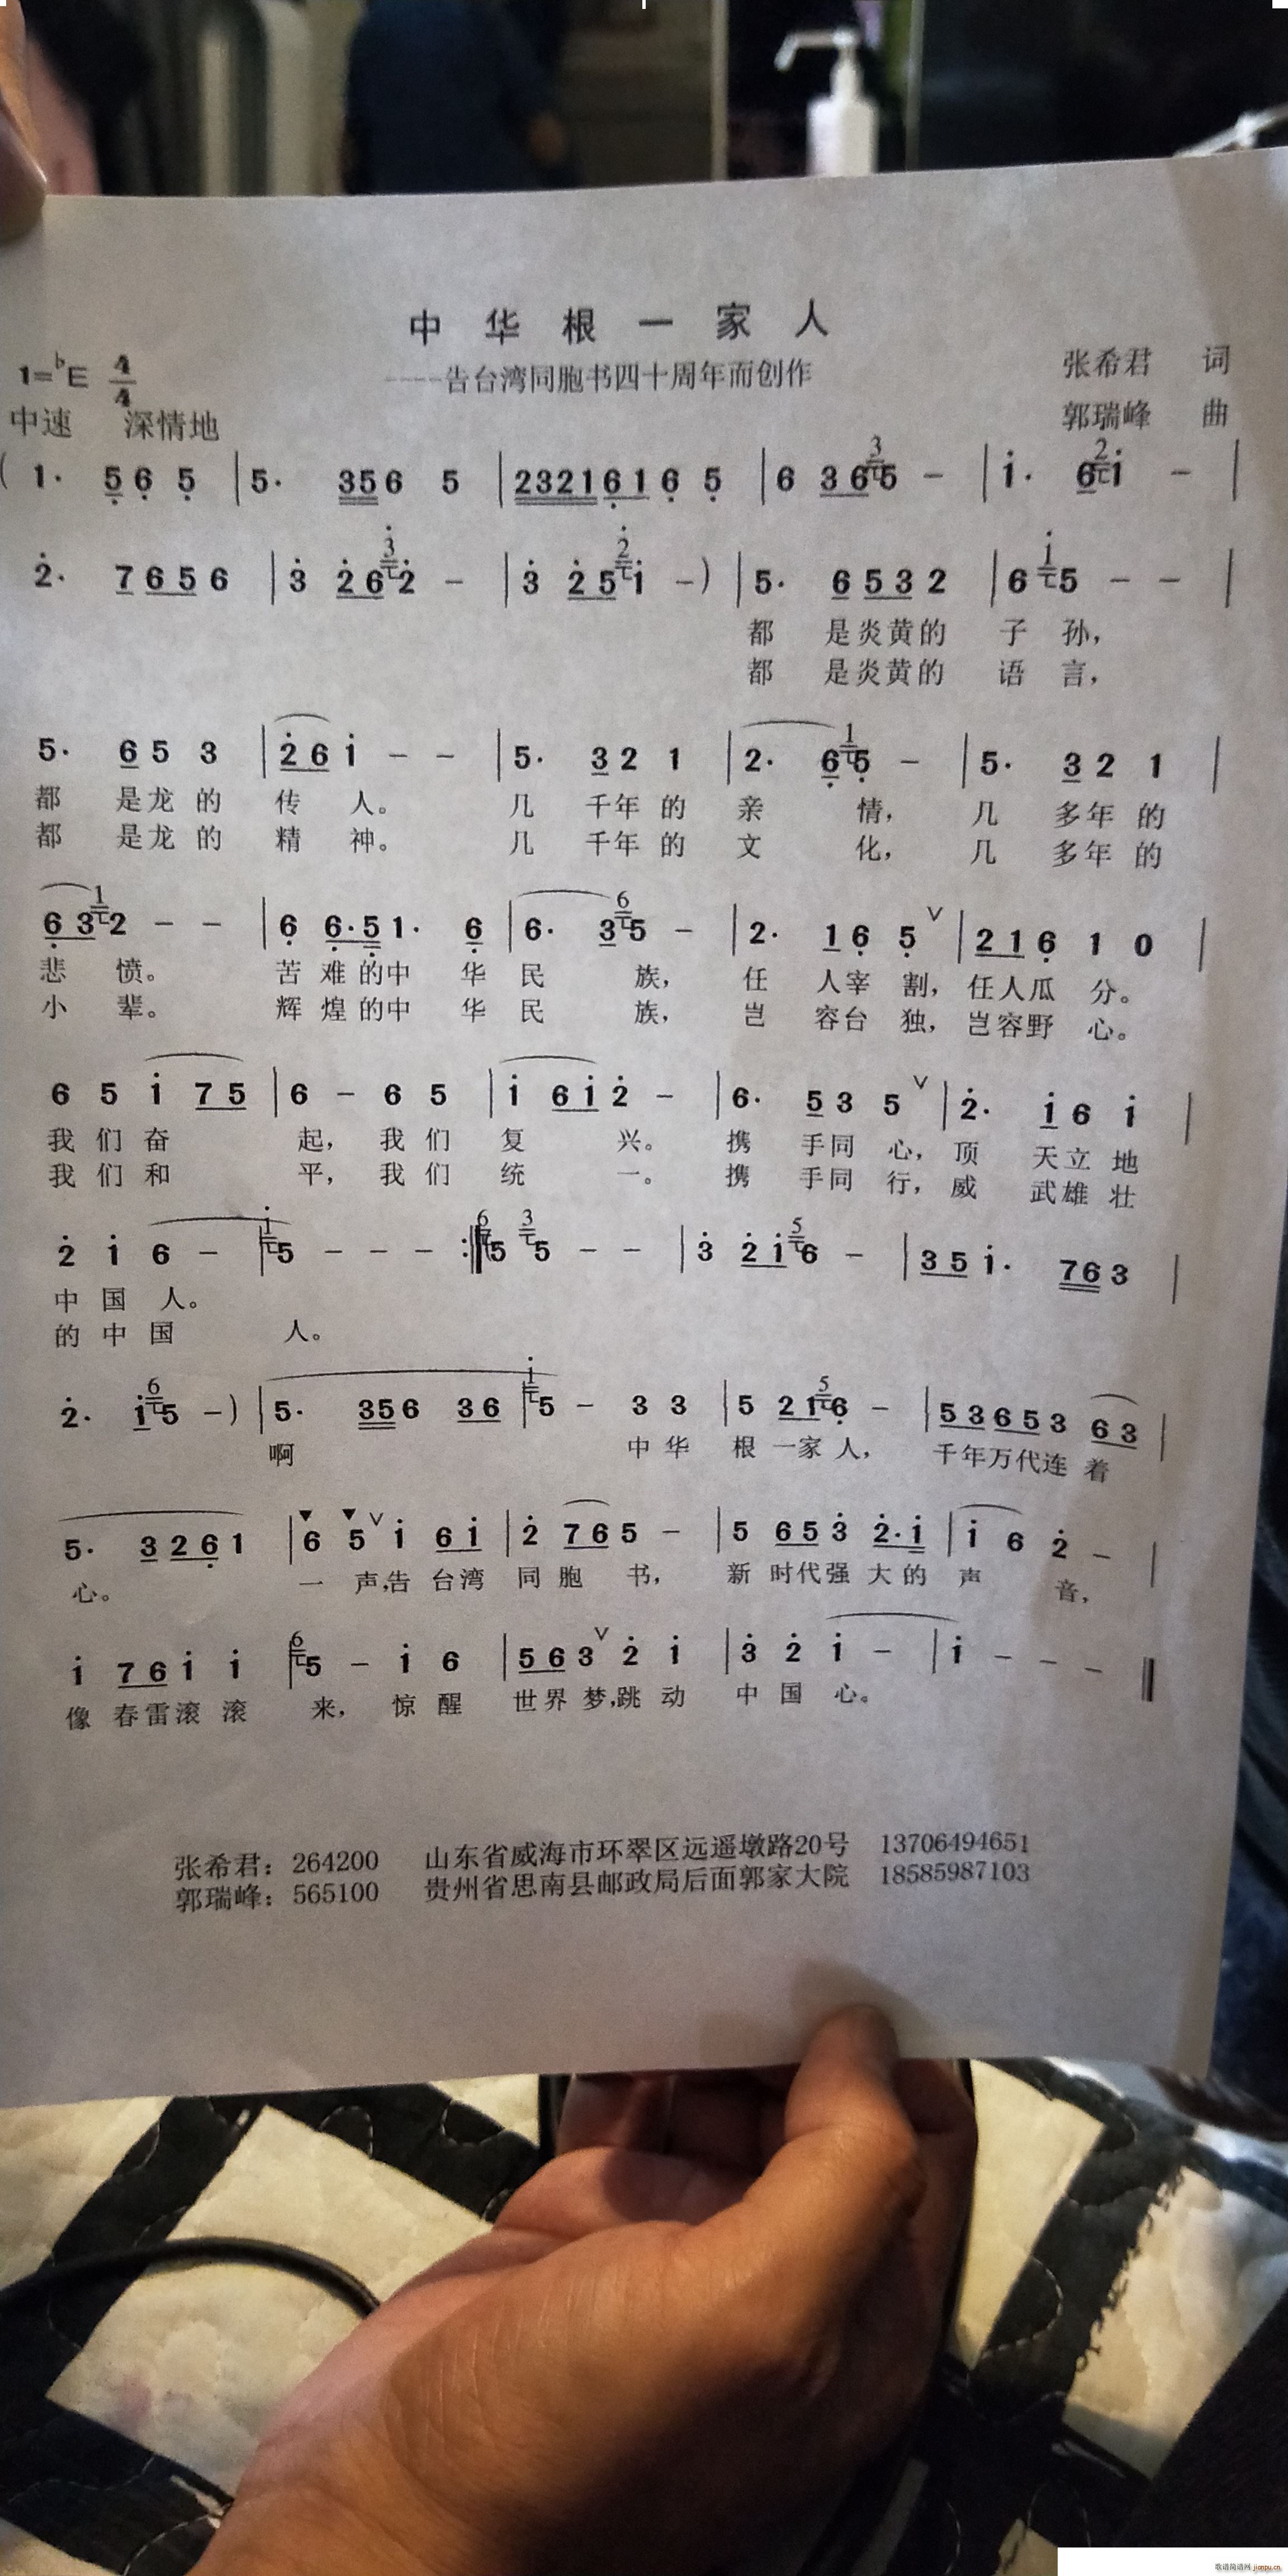 中华根一家人
----告台湾同胞书四十周年而创作
1=♭E 4/4
张希君 词
中速 深情地
郭瑞峰 曲
( 1· 5̣6̣ 5̣ | 5· 356 5 | 23216̣1 6̣ 5̣ | 6 36 3 5 - | i· 6 2 i - |
2̇· 7656 | 3̇ 2̇6 3̇ 2̇ - | 3̇ 2̇5 2̇ i -) | 5· 6532 | 6 i 5 - - |
都 是炎黄的 子 孙，
都 是炎黄的 语 言，
5· 65 3 | 2̇6 i - - | 5· 32 1 | 2· 6̣ 1 5̣ - | 5· 32 1 |
都 是龙的 传 人。 几 千年的 亲 情， 几 多年的
都 是龙的 精 神。 几 千年的 文 化， 几 多年的
6̣3 1 2 - - | 6̣ 6̣·5̣1· 6̣ | 6· 3 6 5 - | 2· 16̣ 5̣ ∨ | 216̣ 1 0 |
悲 愤。 苦 难的中 华 民 族， 任 人宰 割，任人瓜 分。
小 辈。 辉 煌的中 华 民 族， 岂 容台 独，岂容野 心。
6 5 i 75 | 6 - 6 5 | i 6i 2̇ - | 6· 53 5 ∨ | 2̇· i6 i |
我们奋 起，我们 复 兴。 携 手同 心，顶 天立地
我们和 平，我们 统 一。 携 手同 行，威 武雄壮
2̇ i 6 - | i 5 - - - :‖ 6 5 3 5 - - | 3̇ 2̇i 5 6 - | 35 i· 763 |
中国 人。
的中国 人。
2̇· i 6 5 -) | 5· 356 36 | i 5 - 3 3 | 5 21 5 6̣ - | 53653 63 |
啊 中华 根 一家人， 千年万代连 着
5· 326̣1 | 6 5 ∨ i 6i | 2̇ 765 - | 5 653̇ 2̇·i | i 6 2̇ - |
心。 一 声,告 台湾 同胞 书， 新 时代强 大的 声 音，
i 76i i | 6 5 - i 6 | 563 ∨ 2̇ i | 3̇ 2̇ i - | i - - - ‖
像 春雷滚 滚 来， 惊 醒 世界 梦,跳 动 中国 心。
张希君：264200 山东省威海市环翠区远遥墩路20号 13706494651
郭瑞峰：565100 贵州省思南县邮政局后面郭家大院 18585987103
歌谱简谱网 jianpu.cn